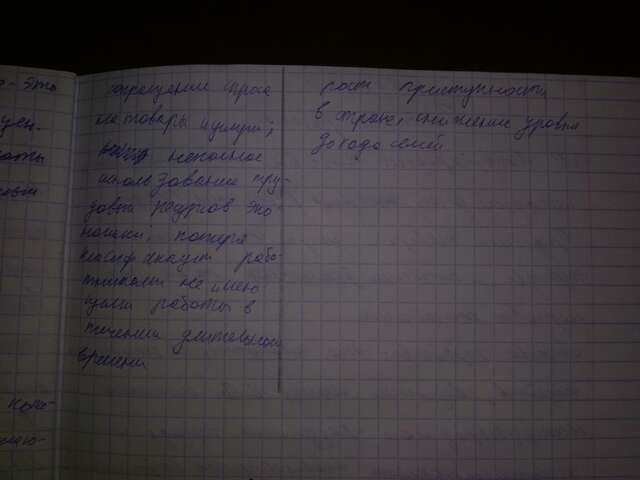 о - это
уен-
сокращение спроса
на товары и услуги;
неполное
использование тру-
довых ресурсов эко-
номики; потеря
квалификации рабо-
тниками не имею-
щими работы в
течении длительного
времени
рост преступности
в стране, снижение уровня
дохода семей